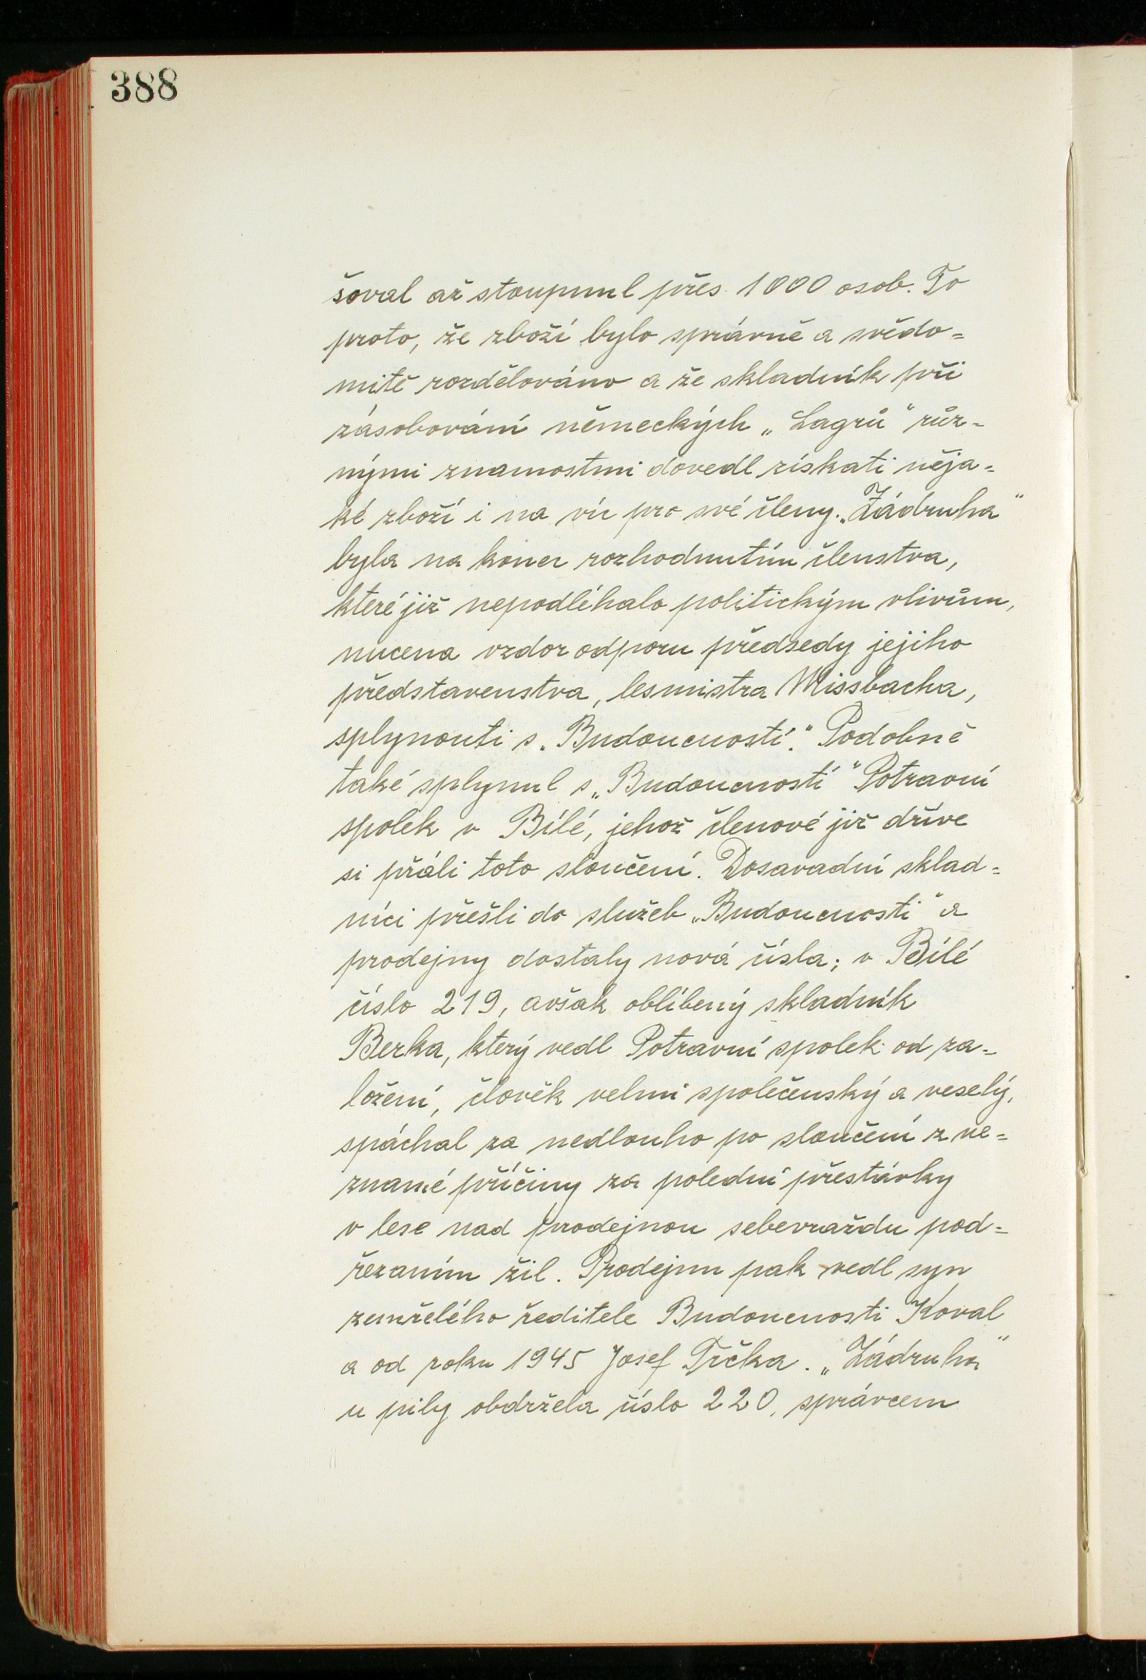 388
šoval až stoupnul přes 1000 osob. To
proto, že zboží bylo správně a svědo=
mitě rozdělováno a že skladník při
zásobování německých „Lagrů" růz=
nými známostmi dovedl získati něja=
ké zboží i na víc pro své členy. „Zádruha"
byla na konec rozhodnutím členstva,
které již nepodléhalo politickým vlivům,
nucena vzdor odporu předsedy jejího
představenstva, lesmistra Missbacha,
splynouti s „Budoucností". Podobně
také splynul s „Budoucností" Potravní
spolek v Bílé, jehož členové již dříve
si přáli toto sloučení. Dosavadní sklad=
níci přešli do služeb „Budoucnosti" a
prodejny dostaly nová čísla; v Bílé
číslo 219, avšak oblíbený skladník
Berka, který vedl Potravní spolek od za=
ložení, člověk velmi společenský a veselý,
spáchal za nedlouho po sloučení z ne=
známé příčiny za polední přestávky
v lese nad prodejnou sebevraždu pod=
řezáním žil. Prodejnu pak vedl syn
zemřelého ředitele Budoucnosti Koval
a od roku 1945 Josef Trčka. „Zádruha"
u pily obdržela číslo 220, správcem